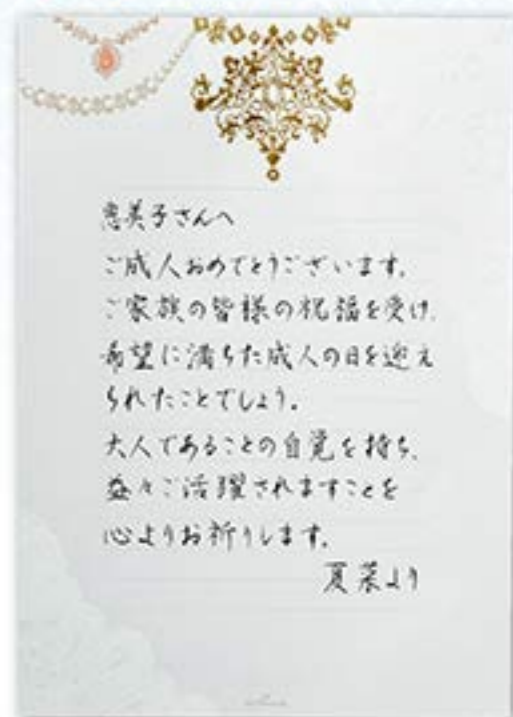 恵美子さんへ
ご成人おめでとうございます。
ご家族の皆様の祝福を受け、
希望に満ちた成人の日を迎え
られたことでしょう。
大人であることの自覚を持ち、
益々ご活躍されますことを
心よりお祈りします。
夏菜より